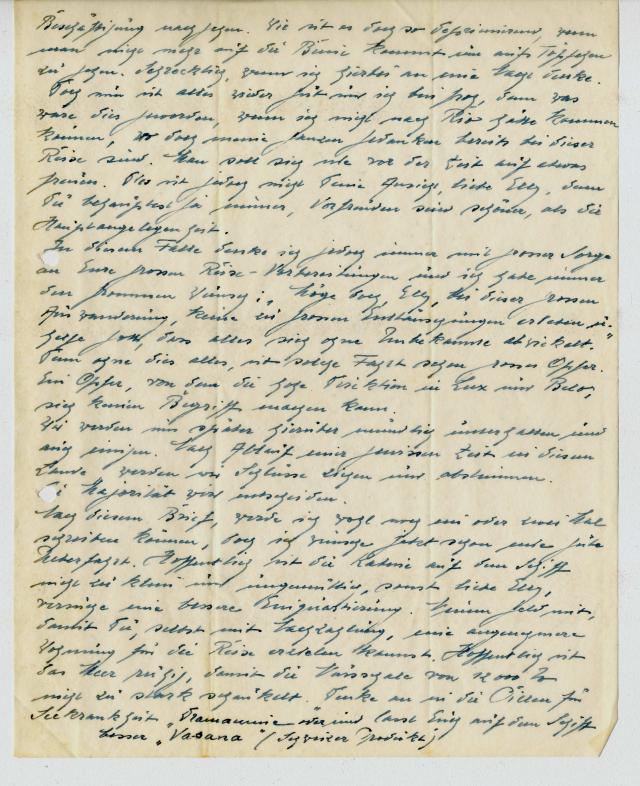 Beschäftigung nachgehen. Wie ist es doch so deprimierend, wenn
man nicht mehr auf die Beine kommt um aufs Töpfchen
zu gehen. Schrecklich, wenn ich hierbei an eine Nacht denke.
Doch nun ist alles wieder gut und ich bin froh, denn was
wäre dies geworden, wenn ich nicht nach Rio hätte kommen
können, wo doch meine ganzen Gedanken bereits bei dieser
Reise sind. Man soll sich nie vor der Zeit auf etwas
freuen. Dies ist jedoch nicht Deine Ansicht, liebe Elly, denn
Du behauptest ja immer, Vorfreuden sind schöner, als die
Hauptangelegenheit.
In diesem Falle denke ich jedoch immer mit grosser Sorge
an Eure grossen Reise-Vorbereitungen und ich habe immer
den frommen Wunsch, möge doch, Elly, bei dieser grossen
Auswanderung, keine zu grossen Enttäuschungen erleben u.
helfe Gott, dass alles sich ohne Unbekannte abwickelt.
Denn ohne dies alles, ist solche Fahrt schon grosses Opfer.
Ein Opfer, von dem die hohe Direktion in Lux und Belo,
sich keinen Begriff machen kann.
Wir werden uns später hierüber mündlich unterhalten und
auch einigen. Nach Ablauf einer gewissen Zeit in diesem
Lande werden wir Schlüsse ziehen und abstimmen.
Majorität wird entscheiden.
Nach diesem Brief, werde ich wohl noch ein oder zwei Mal
schreiben können, doch ich wünsche jetzt schon eine gute
Ueberfahrt. Hoffentlich ist die Kabine auf dem Schiff
nicht zu klein und ungemütlich, sonst liebe Elly,
versuche eine bessere Einquartierung. Nimm Geld mit,
damit Du, selbst mit Nachzahlung, eine angenehmere
Wohnung für die Reise erhalten kannst. Hoffentlich ist
das Meer ruhig, damit die Nussschale von 12000 To
nicht zu stark schaukelt. Denke an die Pillen für
Seekrankheit "Dramamine" oder und lasst Euch auf dem Schiff
besser "Vasana" (Schweizer Produkt)